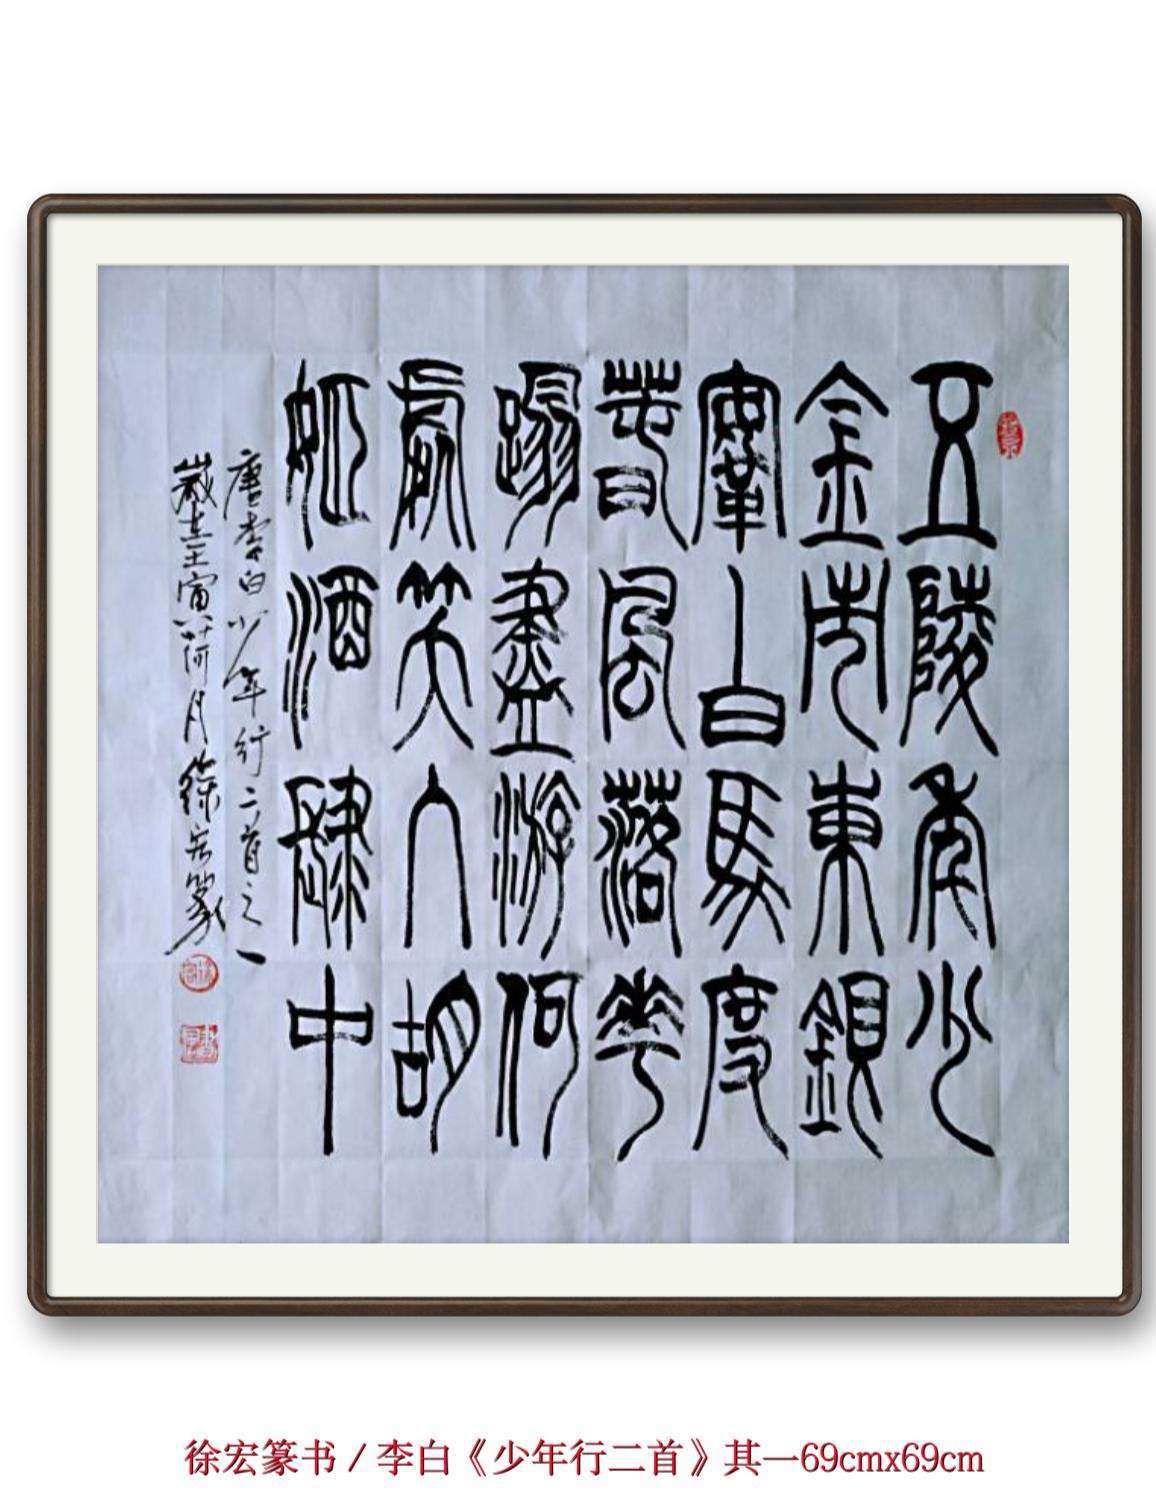 五陵年少
金市東銀
鞌白馬度
春風落花
蹋盡游何
處笑入胡
姬酒肆中
唐李白少年行二首之一
歲在壬寅荷月徐宏篆
徐宏篆书/李白《少年行二首》其一69cmx69cm